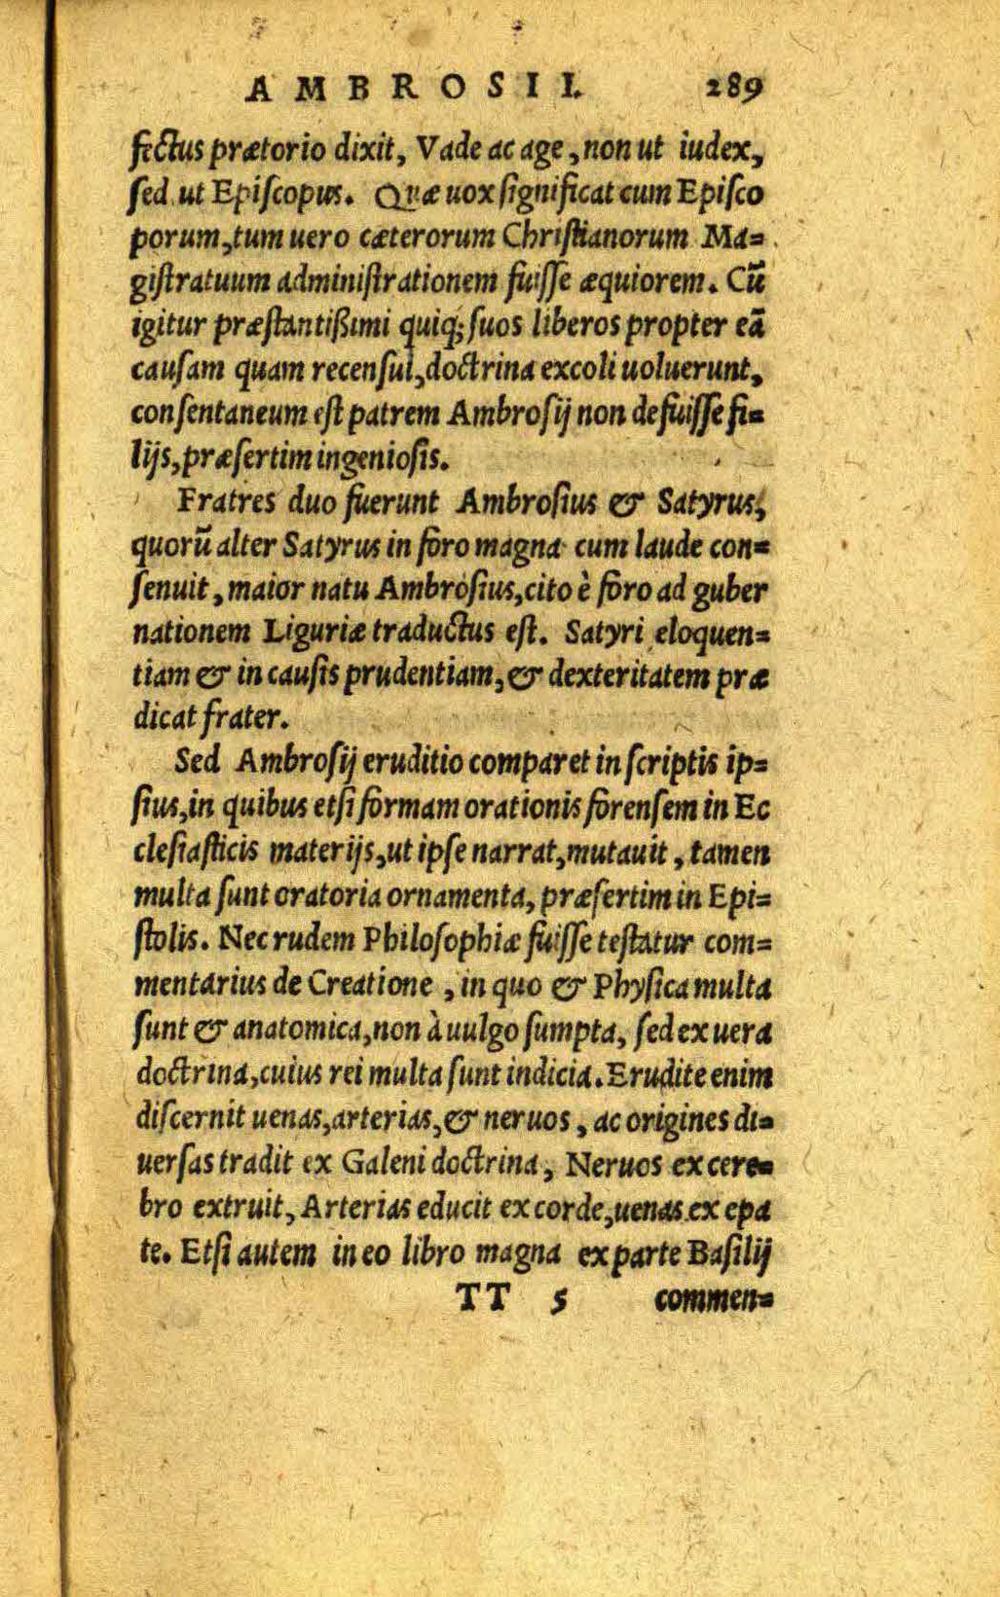 AMBROSII. 289
fectus prætorio dixit, Vade ac age, non ut iudex,
sed ut Episcopus. Quæ uox significat cum Episco
porum, tum uero cæterorum Christianorum Ma=
gistratuum administrationem fuisse æquiorem. Cũ
igitur præstantißimi quiq; suos liberos propter eã
causam quam recensui, doctrina excoli uoluerunt,
consentaneum est patrem Ambrosij non defuisse fi=
lijs, præsertim ingeniosis.
Fratres duo fuerunt Ambrosius & Satyrus,
quorũ alter Satyrus in foro magna cum laude con=
senuit, maior natu Ambrosius, cito è foro ad guber
nationem Liguriæ traductus est. Satyri eloquen=
tiam & in causis prudentiam, & dexteritatem præ
dicat frater.
Sed Ambrosij eruditio comparet in scriptis ip=
sius, in quibus etsi formam orationis forensem in Ec
clesiasticis materijs, ut ipse narrat, mutauit, tamen
multa sunt oratoria ornamenta, præsertim in Epi=
stolis. Nec rudem Philosophiæ fuisse testatur com=
mentarius de Creatione, in quo & Physica multa
sunt & anatomica, non à uulgo sumpta, sed ex uera
doctrina, cuius rei multa sunt indicia. Erudite enim
discernit uenas, arterias, & neruos, ac origines di=
uersas tradit ex Galeni doctrina, Neruos ex cere=
bro extruit, Arterias educit ex corde, uenas ex epa
te. Etsi autem in eo libro magna ex parte Basilij
TT 5 commen=